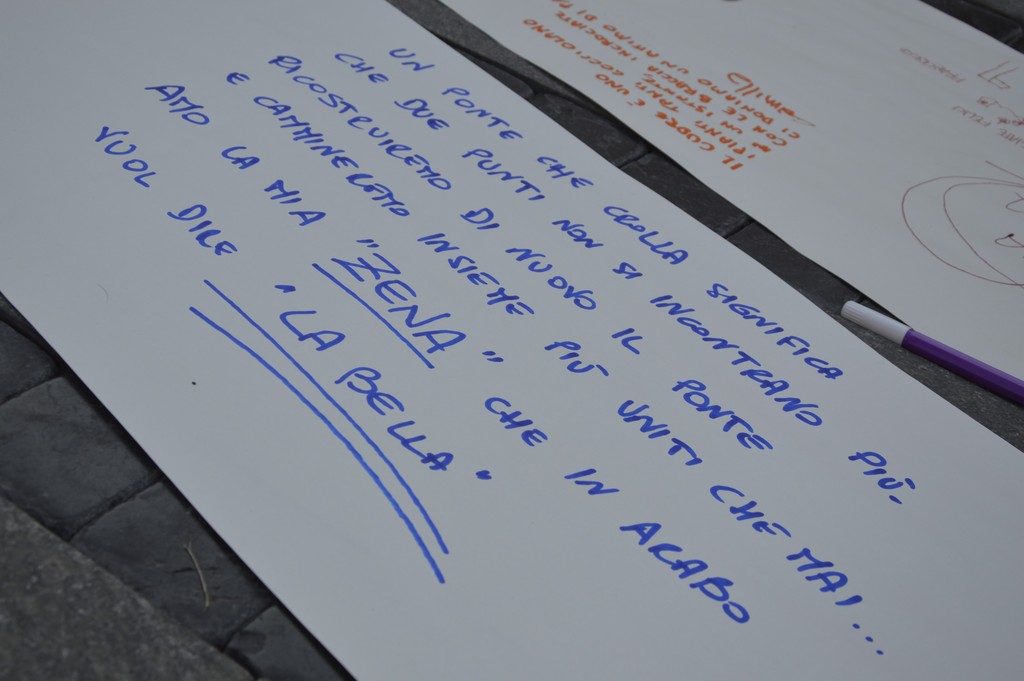 UN PONTE CHE CROLLA SIGNIFICA
CHE DUE PUNTI NON SI INCONTRANO PIÙ.
RICOSTRUIREMO DI NUOVO IL PONTE
E CAMMINEREMO INSIEME PIÙ UNITI CHE MAI...
AMO LA MIA "ZENA" CHE IN ARABO
VUOL DIRE "LA BELLA".
IL CUORE È UNO
CI CON LE BRACCIA INCROCIATE
DONIAMO UN ATTIMO DI
FRANCESCO